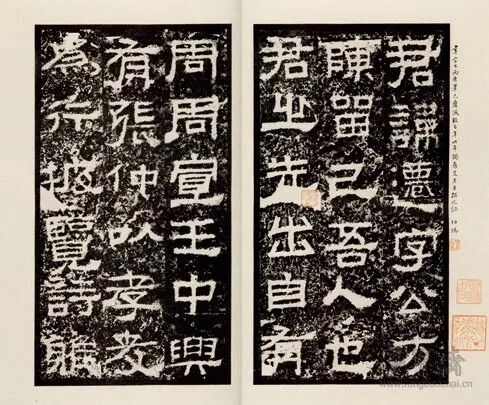 君諱遷字公方
陳留己吾人也
君之先出自有
周周宣王中興
有張仲以孝友
為行披覽詩雅
www.rongbaozhai.cn